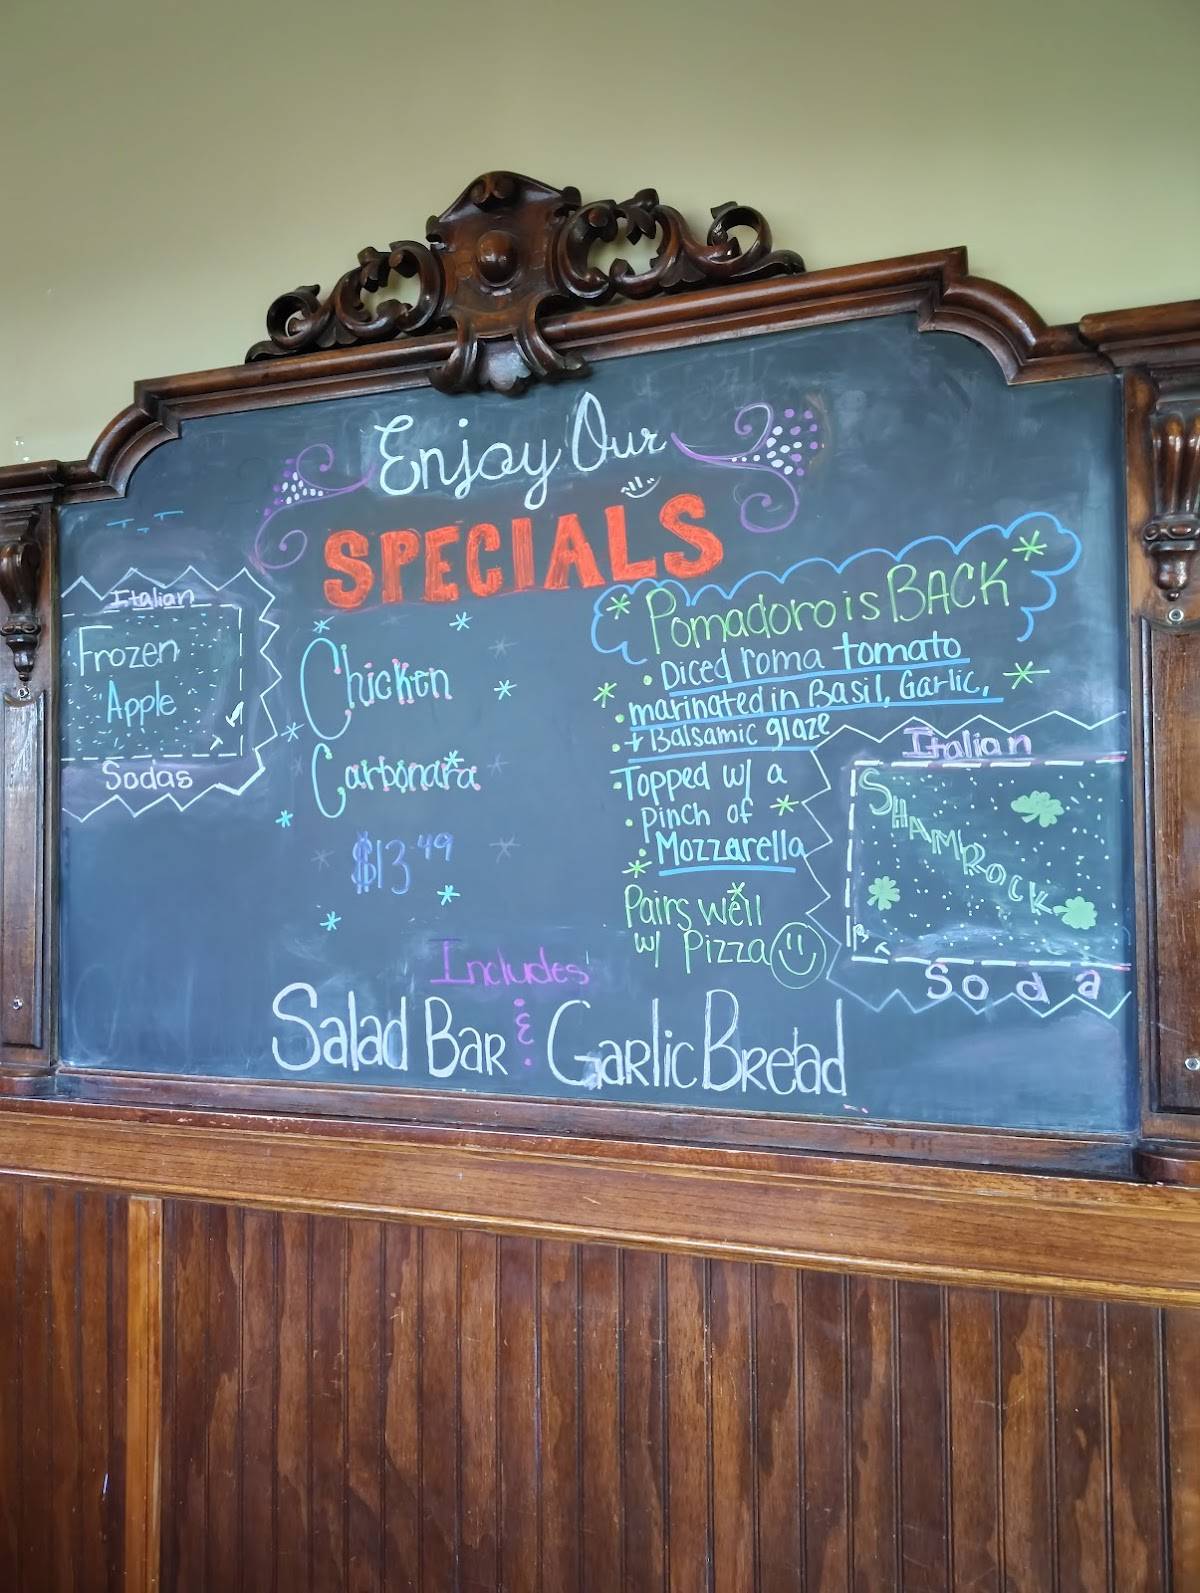 Enjoy Our
SPECIALS
Italian
Frozen
Apple
Sodas
Chicken
Carbonara
$13.49
Pomadoro is BACK
• Diced roma tomato
• marinated in Basil, Garlic,
• + Balsamic glaze
• Topped w/ a
• pinch of
• Mozzarella
Pairs well
w/ Pizza
Italian
SHAMROCK
Soda
Includes
Salad Bar & Garlic Bread